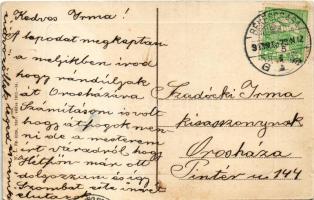 Kedves Irma!
A lapodat megkaptam
a melyikben irod
hogy rándúljak
át Orosházára
Számításom is volt
hogy át fogok men-
ni de a mesterem
írt váradról hogy
Hétfőn már ott
dolgozzam és így
Szombat este
elutazok
Szadécki Irma
kisasszonynak
Orosháza
Pintér u. 144